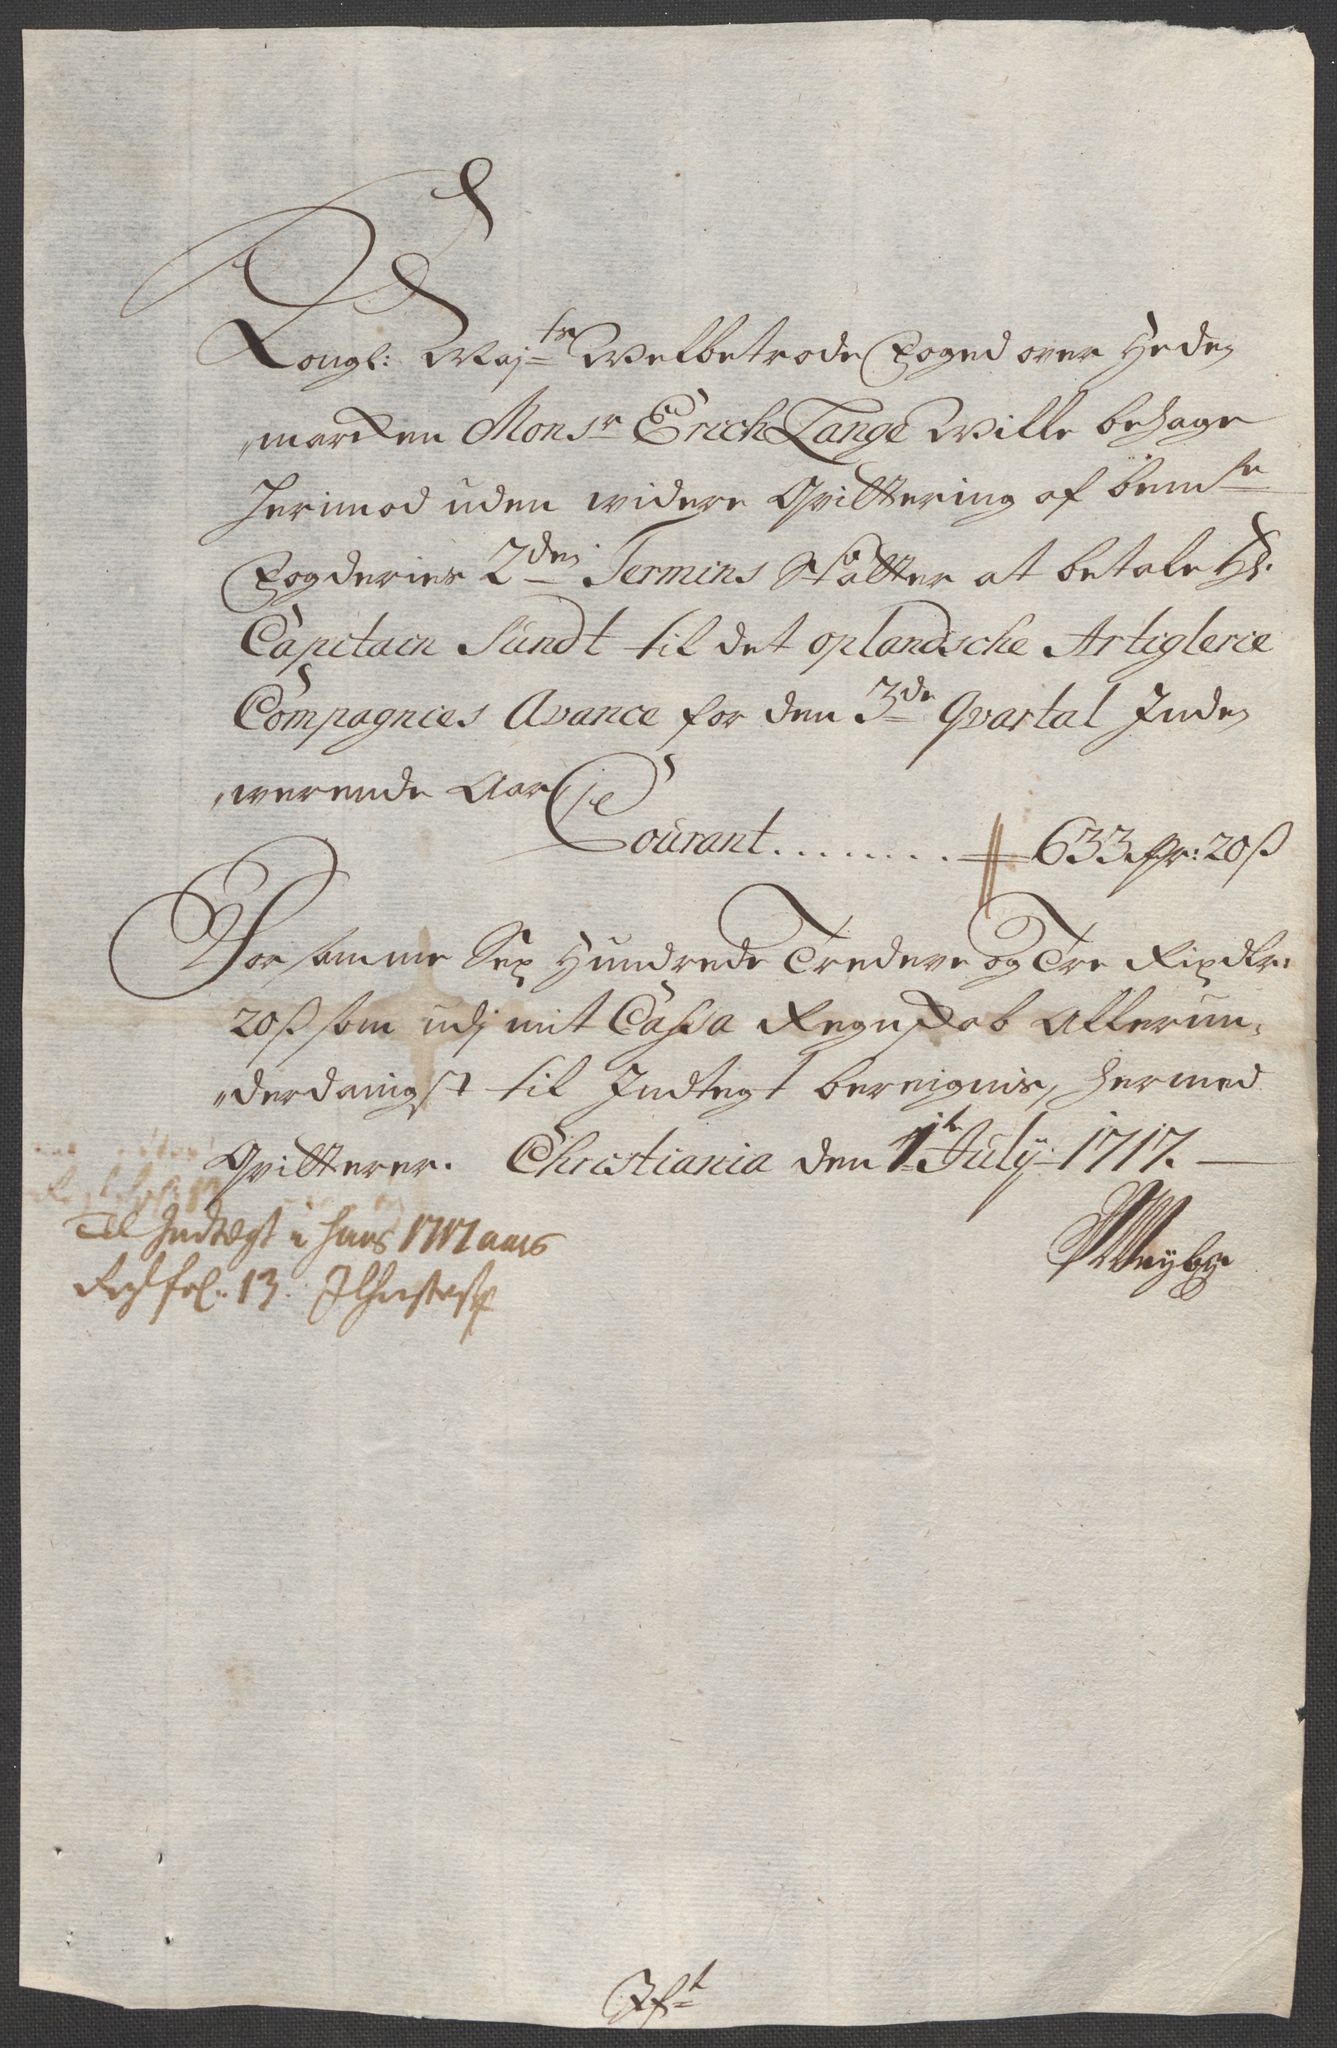 Kongl: Maj:ts Welbetrode Foged over Hede,
„marken Monsr Erich Lange Wille behage
herimod uden widere Qvittering af bemte
Fogderies 2den Termins Skatter at betale Hr.
Capitain Sundt til det oplandische Artiglerie
Compagnies Avance for den 3de Qvartal Inde,
„werende Aar
Courant . . . . . . . . 633 Rdr: 20ß
For samme Sex Hundrede Tredeve og Tre Rixdlr:
20ß som udj mit Cassa Regnskab Allerun,
„derdanigst til Indtegt bereignis, hermed
Qvitterer. Christiania den 1te July: 1717.
Til Indtegt i hans 1717 aars
Regsk fol. 13.